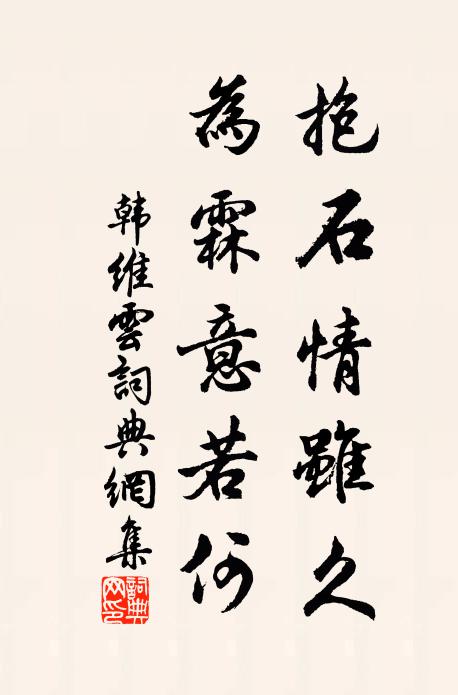 抱石情雖久
為霖意若何
韩維雲詞典網集
詞典
网印